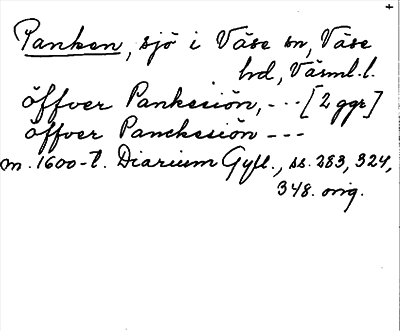 +
Panken, sjö i Väse sn, Väse
hd, Värml. l.
öffver Pankesiön, --- [2 ggr]
öffver Panckesiön ---
m. 1600-t. Diarium Gyll., ss. 283, 324,
348. orig.